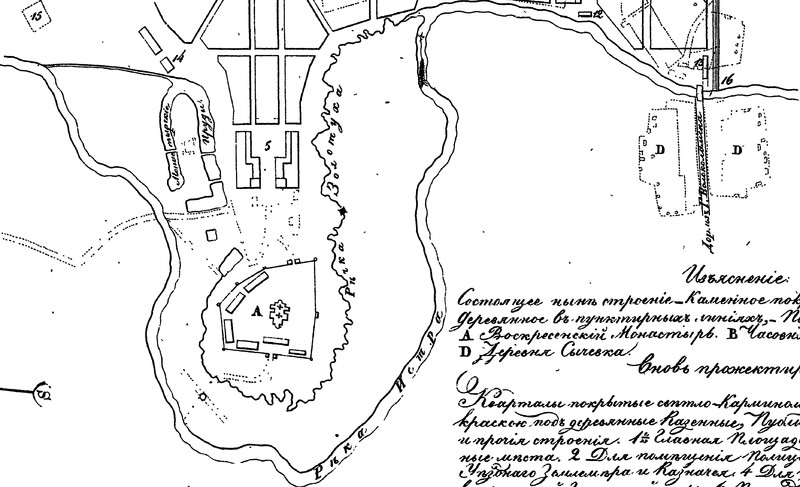 15
12
14
13
16
Монастырскіе
Пруды
5
Рѣчка Золотуха
D
D
Дор. изъ Г. Волоколамска
A
Рѣка Истра
Изъясненіе
Состоящее нынѣ строеніе - Каменное пок
деревянное въ пунктирныхъ линіяхъ, -
A Воскресенскій Монастырь. B Часовня
D Деревня Сычевка.
Вновь прожектир
Кварталы покрытые свѣтло-Карминою
краскою подъ деревянные Казенные, Публи
и прочія строенія. 1ая Главная Площадь
ные мѣста. 2 Для помѣщенія Полиц
Уѣзднаго Землемѣра и Казначея. 4 Для